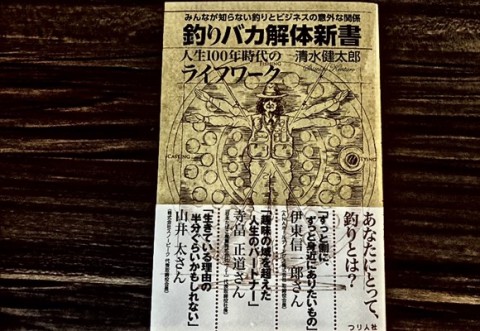 みんなが知らない釣りとビジネスの意外な関係
釣りバカ解体新書
人生100年時代の
ライフワーク
清水健太郎
あなたにとって、
釣りとは?
「ずっと側に、
ずっと身近にありたいもの」
伊東信一郎さん
「趣味の域を超えた
人生のパートナー」
寺畠正道さん
「生きている理由の
半分ぐらいかもしれない」
山井 太さん
つり人社